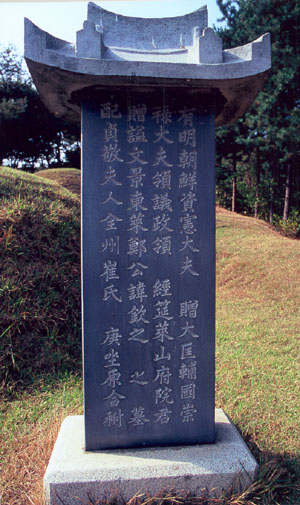 有明朝鮮資憲大夫 贈大匡輔國崇
祿大夫領議政領 經筵萊山府院君
贈諡文景東萊鄭公諱欽之 之墓
配貞敬夫人全州崔氏 庚坐原合祔